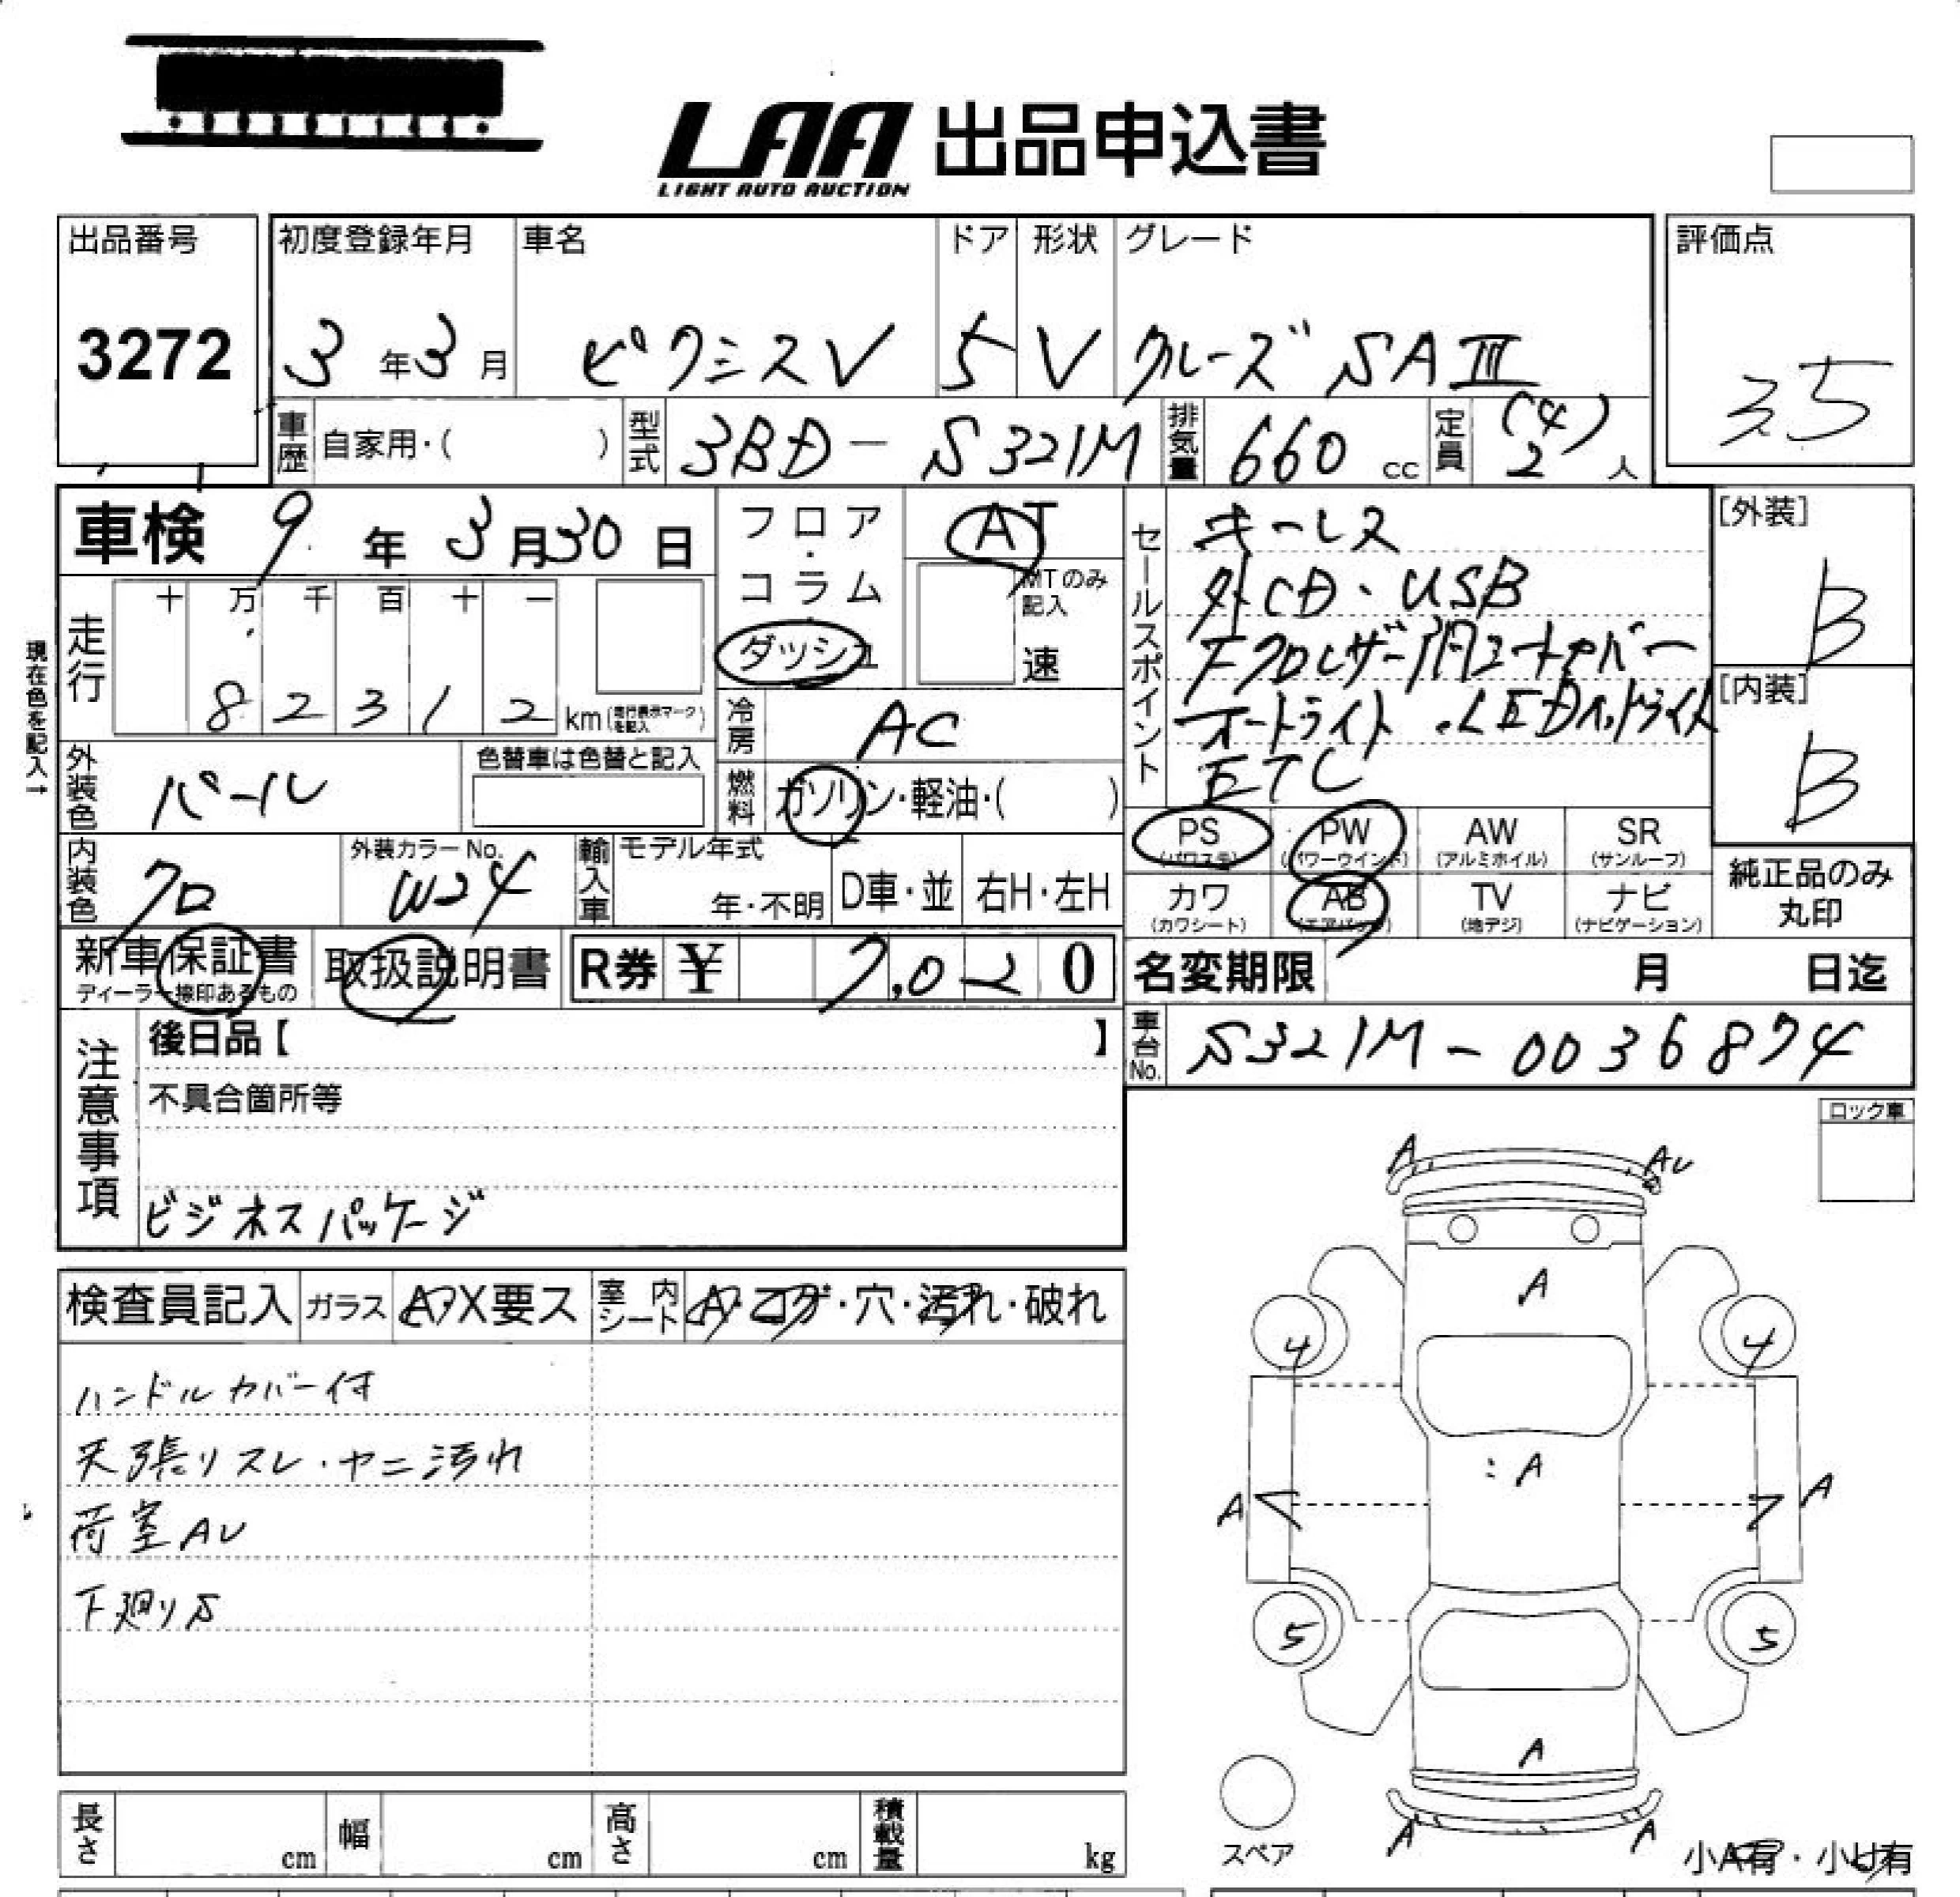 LAA 出品申込書
LIGHT AUTO AUCTION
出品番号
3272
初度登録年月
3年3月
車名
ピクシスV
ドア
5
形状
V
グレード
クルーズ SAⅢ
評価点
3.5
車歴 自家用・( )
型式 3BD-S321M
排気量 660 cc
定員 (4) 2 人
車検 9年3月30日
フロア・コラム・ダッシュ
AT
MTのみ記入
速
セールスポイント
キーレス
外CD・USB
オートライト・LEDヘッドライト
ETC
[外装]
B
[内装]
B
現在色を記入→
走行 十 万 千 百 十 一
82312 km (走行表示マークを記入)
冷房 AC
燃料 ガソリン・軽油・( )
外装色 パール
色替車は色替と記入
内装色 クロ
外装カラーNo. W24
輸入車 モデル年式
年・不明 D車・並 右H・左H
PS (パワステ) PW (パワーウインド) AW (アルミホイル) SR (サンルーフ)
カワ (カワシート) AB (エアバッグ) TV (地デジ) ナビ (ナビゲーション)
純正品のみ丸印
新車保証書 ディーラー捺印あるもの
取扱説明書
R券 ¥ 7,020
名変期限 月 日迄
車台No. S321M-0036874
注意事項
後日品【 】
不具合箇所等
ビジネスパッケージ
ロック車
検査員記入 ガラス A・X要ス 室内シート A・コゲ・穴・汚れ・破れ
ハンドルカバー付
天張リスレ・ヤニ汚れ
荷室AU
下廻りS
A AU
A
4 4
A
A A
5 5
A
A A
スペア
小A有・小U有
長さ cm 幅 cm 高さ cm 積載量 kg